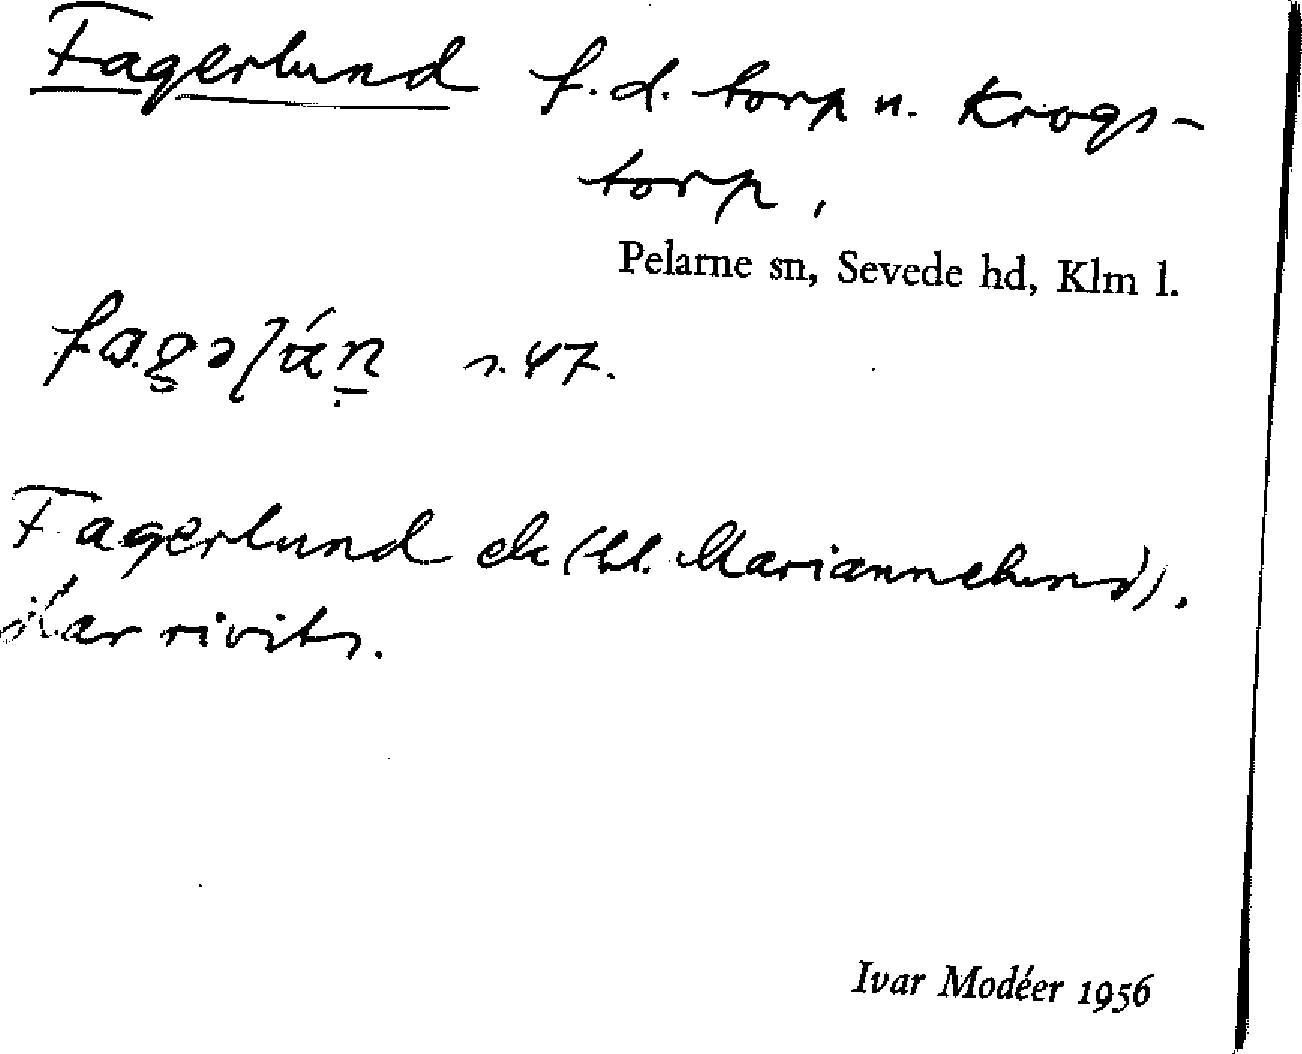 Fagerlund f.d. torp u. Krogs-
torp,
Pelarne sn, Sevede hd, Klm l.
s. 47.
Fagerlund ek (bl. Mariannelund).
Har rivits.
Ivar Modéer 1956